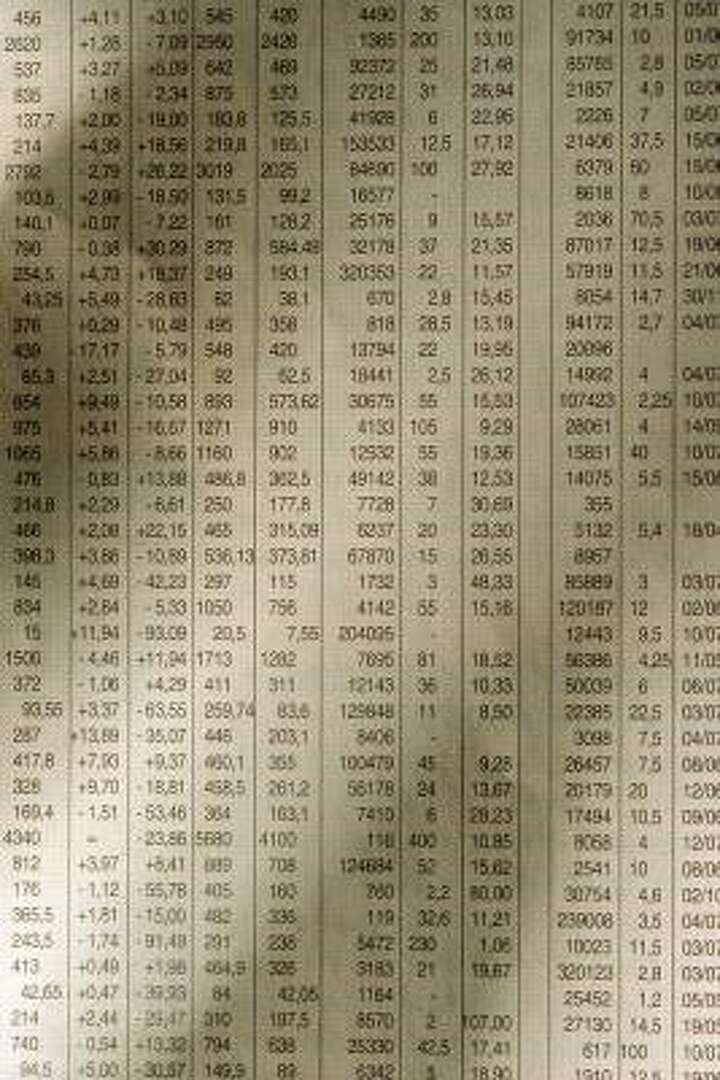 456 +4,11 +3,10 545 420 4490 35 13,03 4107 21,5
2620 +1,26 -7,09 2950 2426 1365 200 13,10 91734 10
537 +3,27 +5,09 642 469 92372 25 21,48 2,8
-1,18 -2,34 875 573 27212 31 26,94 21857 4,9
137,7 +2,00 -19,00 183,8 125,5 41928 6 22,95 2226 7
214 +4,39 +18,56 219,8 153533 12,5 17,12 21406 37,5
2792 -2,79 +26,22 3019 2025 100 27,92 6379
103,5 +2,99 -18,50 131,5 99,2 16577 - 8618 8
140,1 +0,07 -7,22 161 126,2 25176 9 15,57 2036 70,5
790 -0,38 +30,29 872 584,48 32178 37 21,35 87017 12,5
254,5 +4,73 +18,37 249 193,1 320353 22 11,57 57919 11,5
43,25 +5,49 -28,63 62 38,1 670 2,8 15,45 14,7
376 +0,29 -10,48 495 358 818 28,5 13,19 94172 2,7
439 -17,17 -5,79 548 420 13794 22 19,95 20096
65,3 +2,51 -27,04 92 62,5 18441 2,5 26,12 14992 4
854 +9,49 -10,58 893 573,62 30675 55 15,53 107423 2,25
975 +5,41 -16,67 1271 910 4133 105 9,29 28061 4
1065 +5,86 -8,66 1160 902 12532 55 19,36 15851 40
476 -0,83 +13,88 486,8 362,5 49142 38 12,53 14075 5,5
214,8 +2,29 -6,61 250 177,8 7728 7 30,69 355
466 +2,08 +22,15 465 315,09 6237 20 23,30 5132 5,4
398,3 +3,86 -10,89 536,13 373,61 67870 15 26,55 8957
145 +4,69 -42,23 297 115 1732 3 48,33 85889 3
834 +2,84 -5,33 1050 756 4142 55 15,16 120187 12
15 +11,94 -93,09 20,5 7,55 204095 - 12443 9,5
1500 -4,46 +11,94 1713 1282 7695 81 18,52 56386 4,25
372 -1,06 +4,29 411 311 12143 36 10,33 50039 6
93,55 +3,37 -63,55 259,74 83,6 129848 11 8,50 22385 22,5
287 +13,89 -35,07 446 203,1 8406 - 3098 7,5
417,8 +7,93 +9,37 460,1 355 100479 45 9,28 26457 7,5
328 +9,70 -18,81 458,5 261,2 56178 24 13,67 20179 20
169,4 -1,51 -53,46 364 163,1 7410 6 28,23 17494 10,5
4340 = -23,86 5680 4100 116 400 10,85 8068 4
812 +3,97 +8,41 889 708 124684 52 15,62 2541 10
176 -1,12 -55,78 405 160 760 2,2 80,00 30754 4,6
365,5 +1,81 -15,00 482 336 119 32,6 11,21 239008 3,5
243,5 -1,74 -91,49 291 236 5472 230 1,06 10023 11,5
413 +0,49 +1,98 464,9 326 3183 21 19,67 320123 2,8
42,65 +0,47 -39,93 84 42,05 1164 - 25452 1,2
214 +2,44 -29,47 310 197,5 8570 2 107,00 27130 14,5
740 -0,54 +13,32 794 638 25330 42,5 17,41 617 100
94,5 +5,00 -30,57 149,9 89 6342 18,90 1910